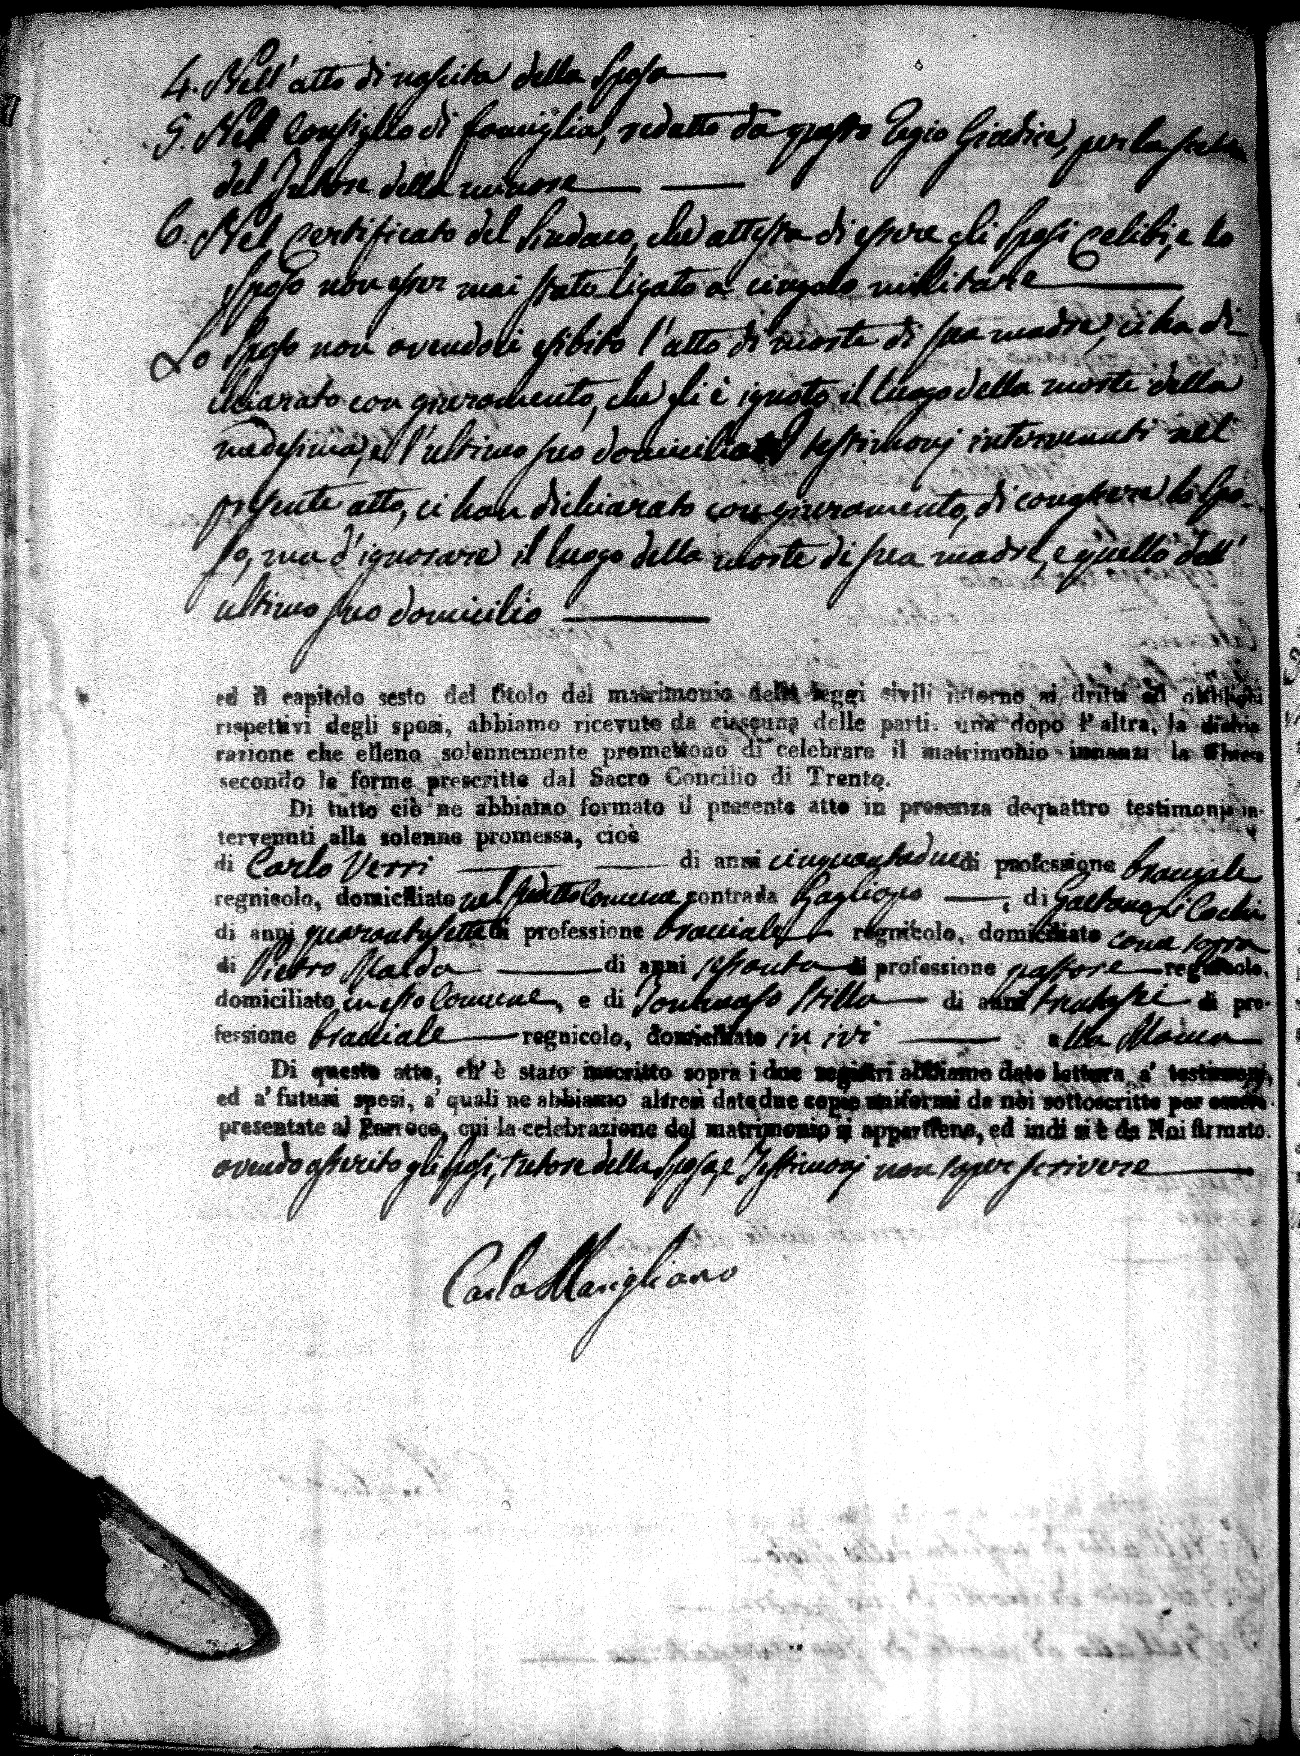 4. Nell'atto di nascita della Sposa
5. Nel Consiglio di famiglia, redatto da questo Regio Giudice, per la scelta
del Tutore della minore
6. Nel Certificato del Sindaco, che attesta di essere gli Sposi Celibi, e lo
Sposo non esser mai stato ligato a cingolo militare
Lo Sposo non avendoci esibito l'atto di morte di sua madre, ci ha di-
chiarato con giuramento, che gli è ignoto il luogo della morte della
medesima, e l'ultimo suo domicilio testimonj intervenuti nel
presente atto, ci han dichiarato con giuramento, di conoscere lo Spo-
so, ma d'ignorare il luogo della morte di sua madre, e quello dell'
ultimo suo domicilio
ed il capitolo sesto del titolo del matrimonio delle leggi civili intorno ai dritti ed obblighi
rispettivi degli sposi, abbiamo ricevuto da ciascuna delle parti. una dopo l'altra, la dichia-
razione che elleno solennemente promettono di celebrare il matrimonio innanzi la Chiesa
secondo le forme prescritte dal Sacro Concilio di Trento.
Di tutto ciò ne abbiamo formato il presente atto in presenza de quattro testimonj in-
tervenuti alla solenne promessa, cioè
di Carlo Verri di anni cinquantadue di professione bracciale
regnicolo, domiciliato nel suddetto Comune, contrada , di Gaetano
di anni quarantasette di professione bracciale regnicolo, domiciliato come sopra
di Pietro di anni sessanta di professione pastore regnicolo,
domiciliato in esso Comune, e di Tommaso Stilla di anni trentasei di pro-
fessione bracciale regnicolo, domiciliato in ivi alla
Di questo atto, ch'è stato inscritto sopra i due registri abbiamo dato lettura a' testimonj,
ed a' futuri sposi, a' quali ne abbiamo altresì date due copie uniformi da noi sottoscritte per essere
presentate al Parroco, cui la celebrazione del matrimonio si appartiene, ed indi si è da Noi firmato.
avendo asserito gli Sposi, tutore della Sposa, e Testimonj non saper scrivere
Carlo Marigliano